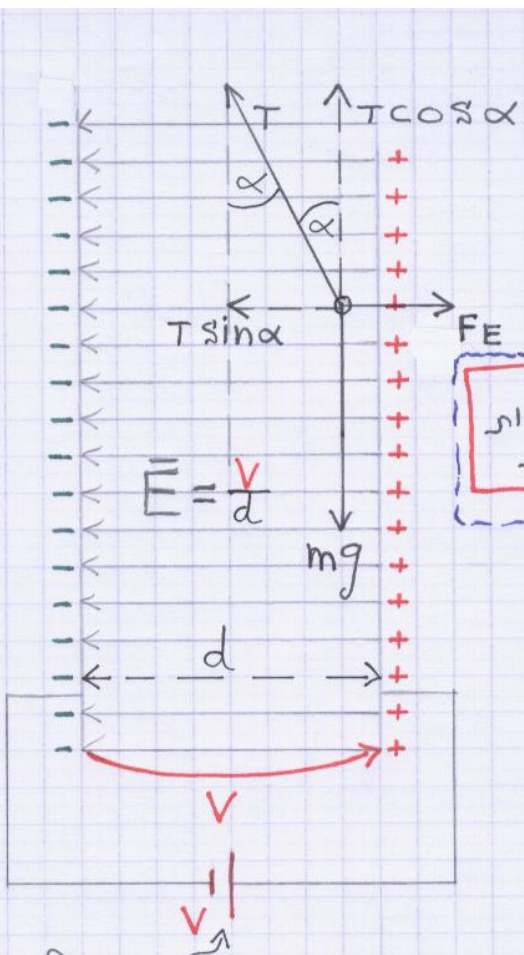 T T cos α
α
α
T sin α FE
E = V/d
mg
d
V
V